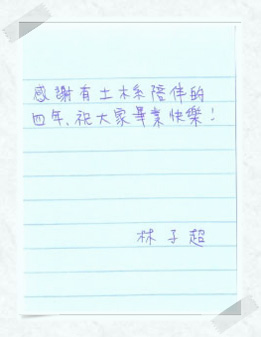 感謝有土木系陪伴的
四年、祝大家畢業快樂！
林子超